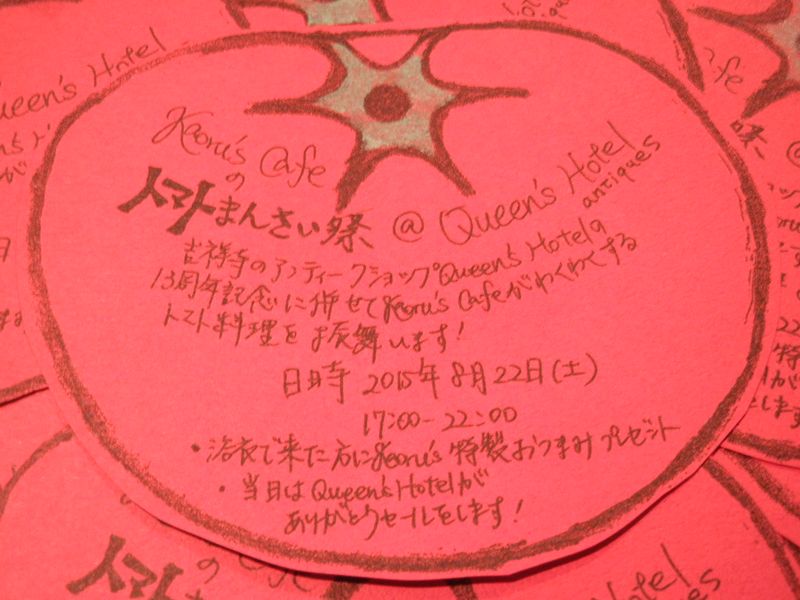 Keoru's Cafe
の
トマトまんさい祭 @ Queen's Hotel
antiques
吉祥寺のアンティークショップQueen's Hotelの
13周年記念に併せてKeoru's Cafeがわくわくする
トマト料理をお振舞います!
日時 2015年8月22日(土)
17:00-22:00
・浴衣で来た方にKeoru's特製おつまみプレゼント
・当日はQueen's Hotelが
ありがとうセールをします!
Queen's Hotel
トマト
Hotel